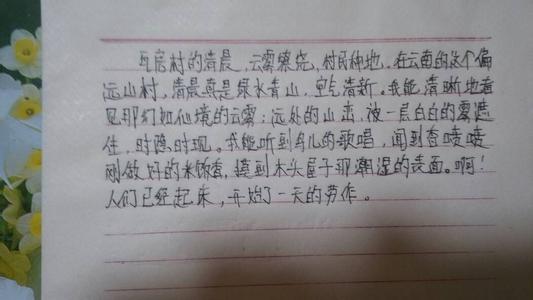 瓦房村的清晨,云雾缭绕,村民种地。在云南的这个偏
远山村,清晨真是绿水青山,空气清新。我能清晰地看
见那幻如仙境的云雾:远处的山峦,被一层白白的雾遮
住,时隐时现。我能听到鸟儿的歌唱,闻到香喷喷
刚做好的米饭香,摸到木头屋子那潮湿的表面。啊!
人们已经起床,开始了一天的劳作。